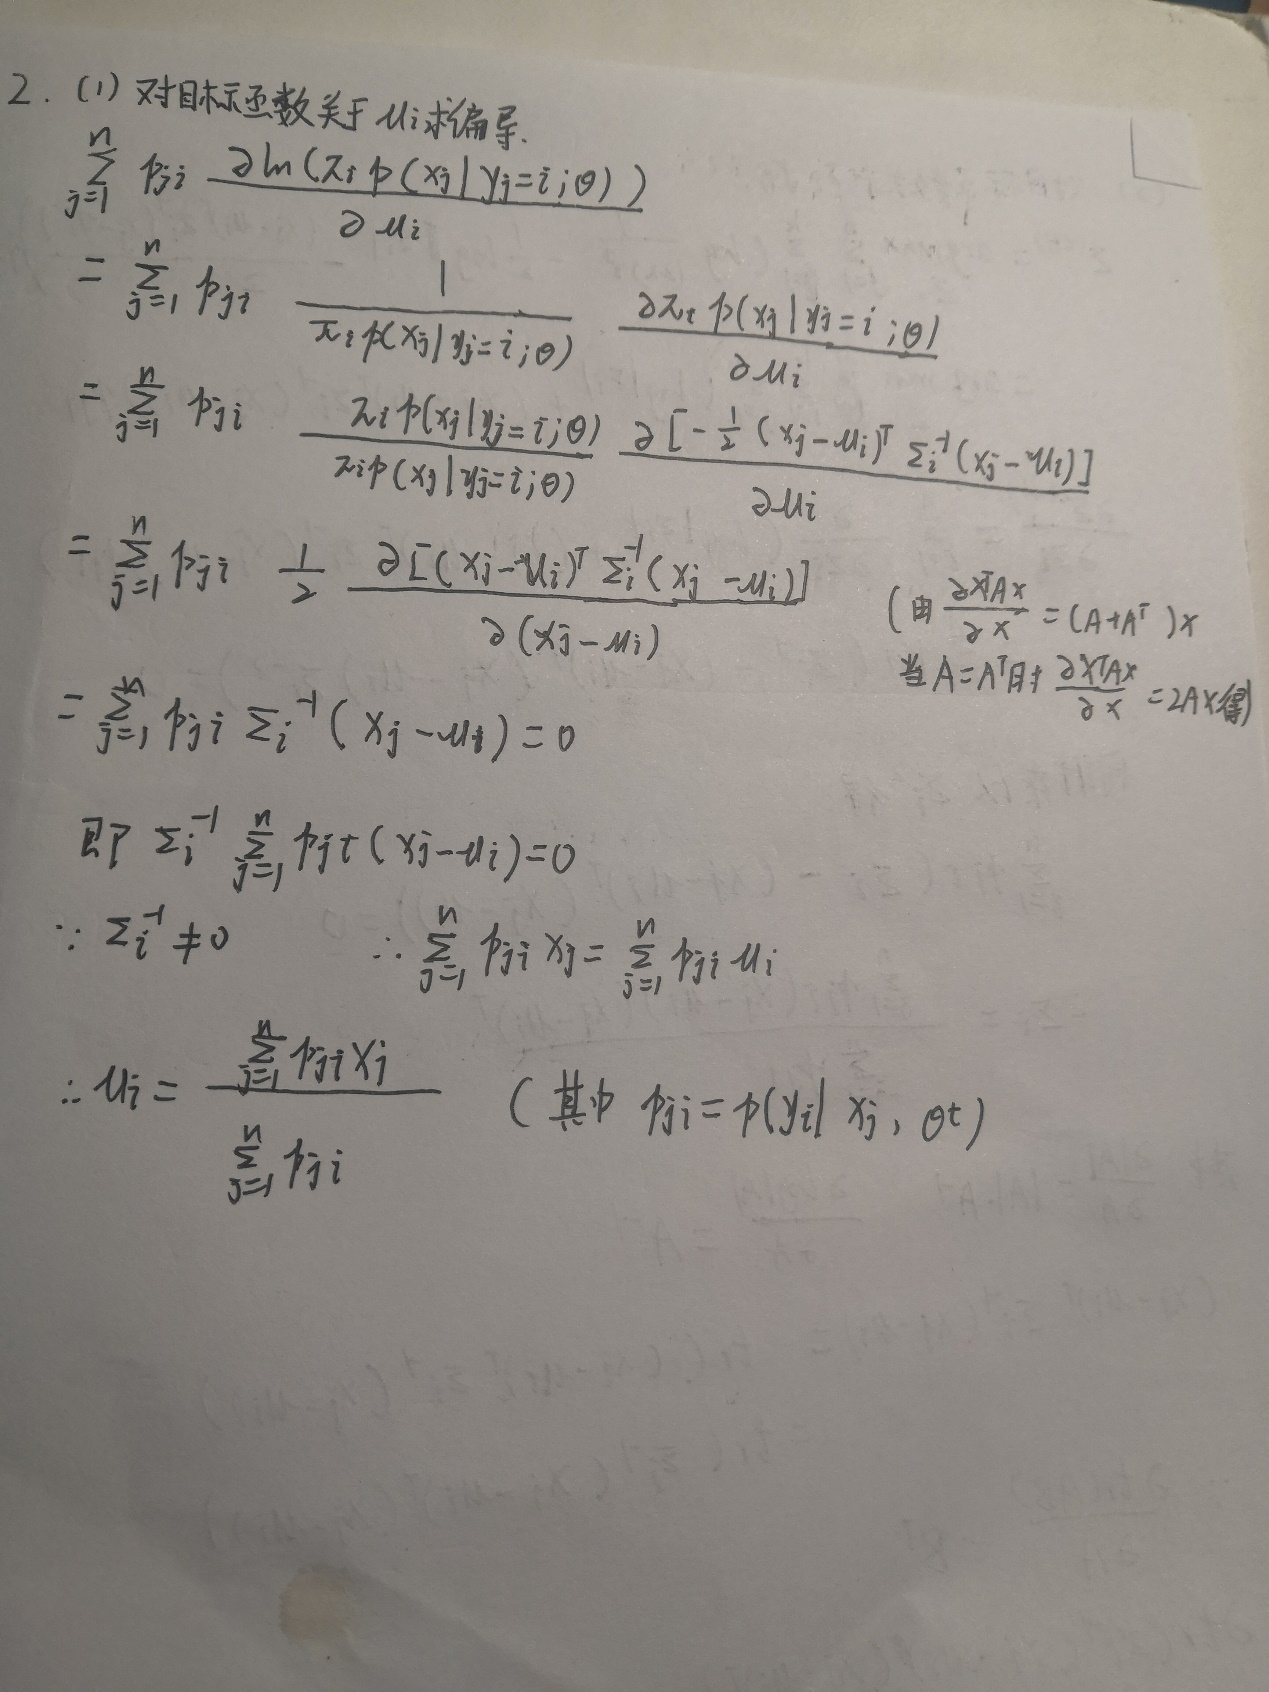 2. (1) 对目标函数关于 μi求偏导.
n∑j=1 pji ∂ln(πi p(xj|yj=i;θ)) / ∂μi
= n∑j=1 pji 1 / πi p(xj|yj=i;θ) ∂πi p(xj|yj=i;θ) / ∂μi
= n∑j=1 pji πi p(xj|yj=i;θ) / πi p(xj|yj=i;θ) ∂[-1/2 (xj-μi)ᵀ Σi⁻¹(xj-μi)] / ∂μi
= n∑j=1 pji 1/2 ∂[(xj-μi)ᵀ Σi⁻¹(xj-μi)] / ∂(xj-μi) (由 ∂xᵀAx / ∂x = (A+Aᵀ)x
当A=Aᵀ时 ∂xᵀAx / ∂x = 2Ax得)
= n∑j=1 pji Σi⁻¹(xj-μi)=0
即 Σi⁻¹ n∑j=1 pji(xj-μi)=0
∵ Σi⁻¹≠0 ∴ n∑j=1 pji xj = n∑j=1 pji μi
∴ μi = n∑j=1 pji xj / n∑j=1 pji (其中 pji=p(yi|xj, θt)